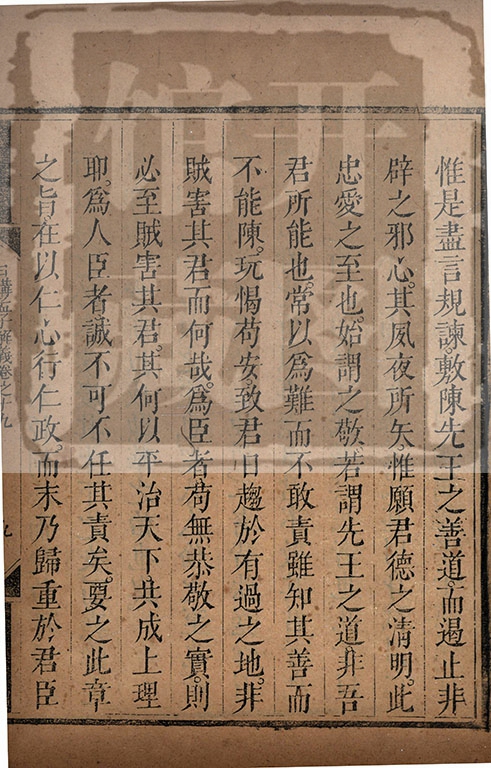 惟是盡言規諫敷陳先王之善道而遏止非
辟之邪心。其夙夜所矢惟願君德之清明。此
忠愛之至也。始謂之敬若謂先王之道非吾
君所能也。常以爲難而不敢責雖知其善而
不能陳。玩愒苟安。致君日趨於有過之地。非
賊害其君而何哉。爲臣者苟無恭敬之實。則
必至賊害其君。其何以平治天下共成上理
耶。爲人臣者誠不可不任其責矣。要之此章
之旨在以仁心行仁政。而末乃歸重於君臣
日講孟子解義卷之十九
九